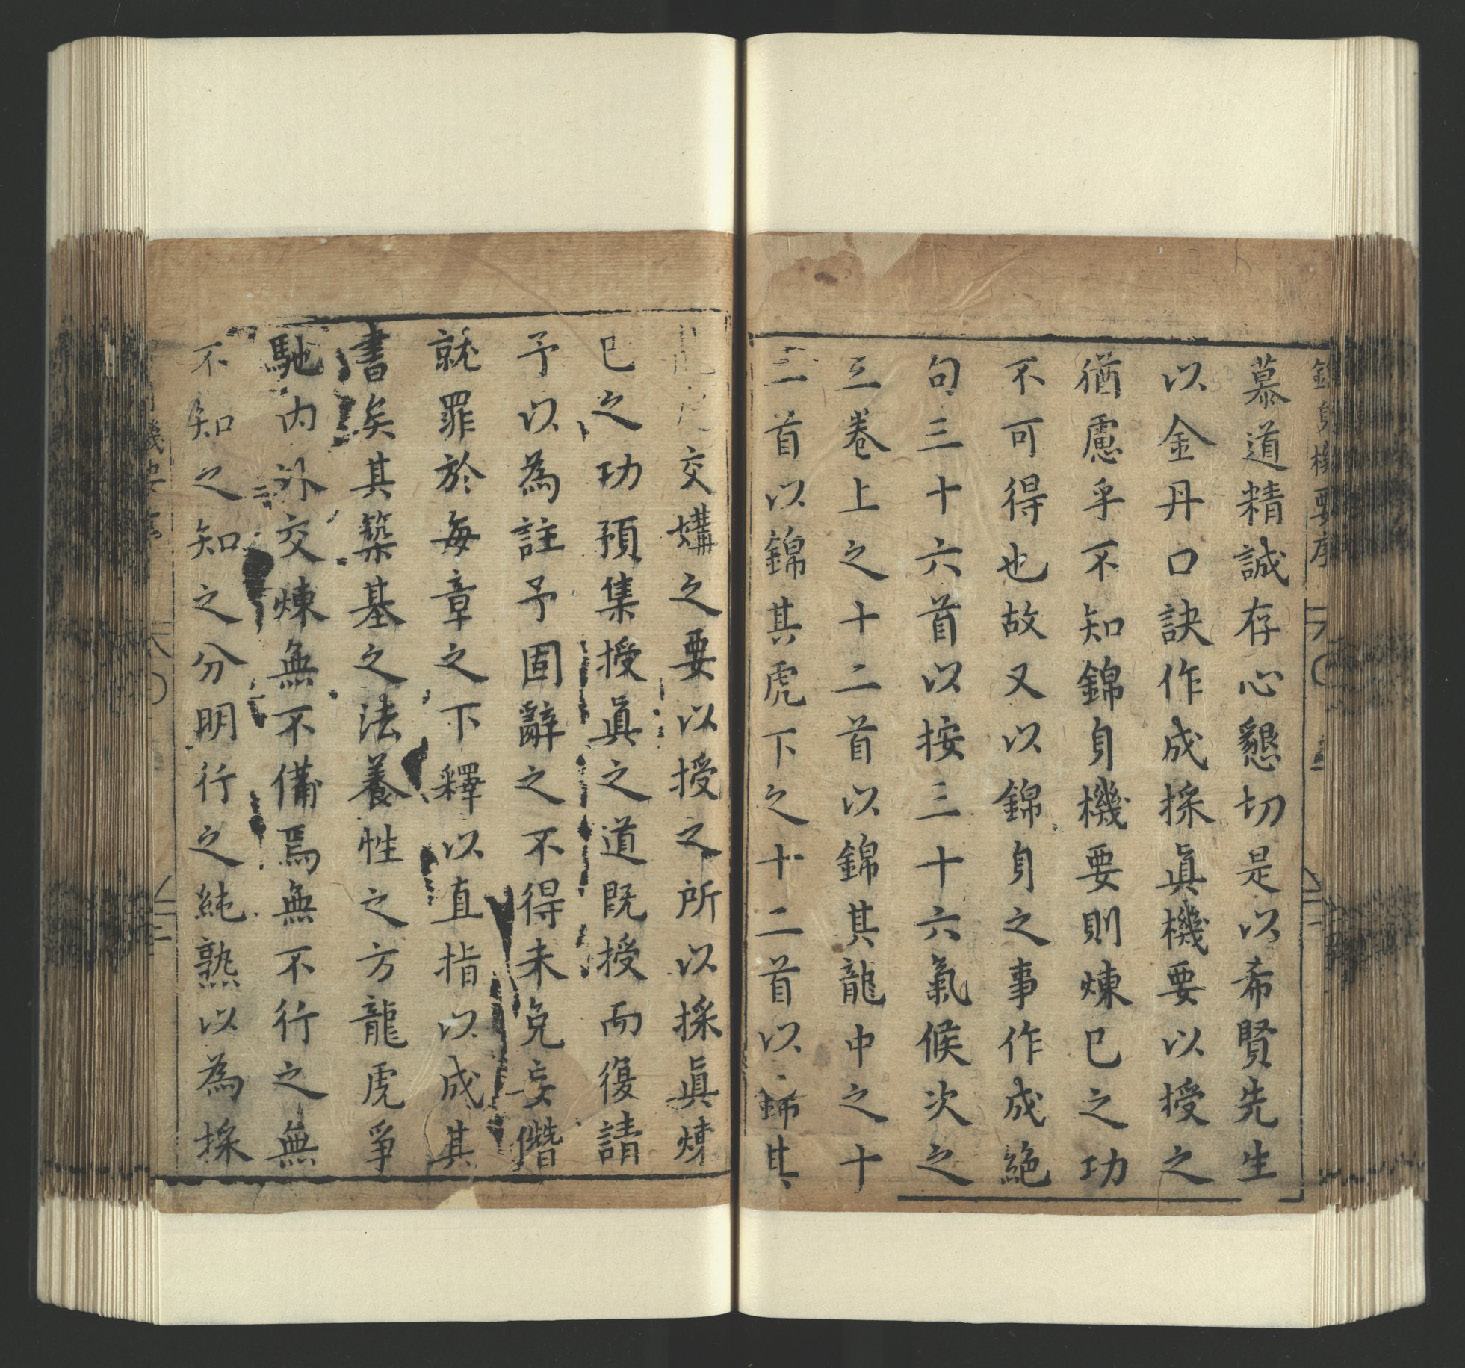 慕道精誠存心懇切是以希賢先生
以金丹口訣作成採眞機要以授之
猶慮乎不知錦身機要則煉已之功
不可得也故又以錦身之事作成絶
句三十六首以按三十六氣候次之
三卷上之十二首以錦其龍中之十
二首以錦其虎下之十二首以錦其
交媾之要以授之所以採眞煉
已之功預集授眞之道既授而復請
予以為註予固辭之不得未免妄僭
就罪於每章之下釋以直指以成其
書矣其築基之法養性之方龍虎爭
馳内外交煉無不備焉無不行之無
不知之知之分明行之純熟以為採